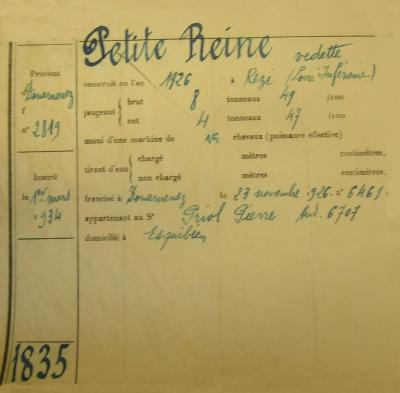 Petite Reine vedette
Provient
Douarnenez
f
n° 2819
construit en l'an 1926 à Rezé (Loire Inférieure)
jaugeant { brut 8 tonneaux 49 /100
net 4 tonneaux 47 /100
muni d'une machine de 15 chevaux (puissance effective)
tirant d'eau { chargé mètres centimètres,
non chargé mètres centimètres,
Inscrit
le 1er mars
1934
francisé à Douarnenez le 23 novembre 1926 = n° 6461.
appartenant au Sr Priol Pierre Aud. 6707
domicilié à Esquibien
1835